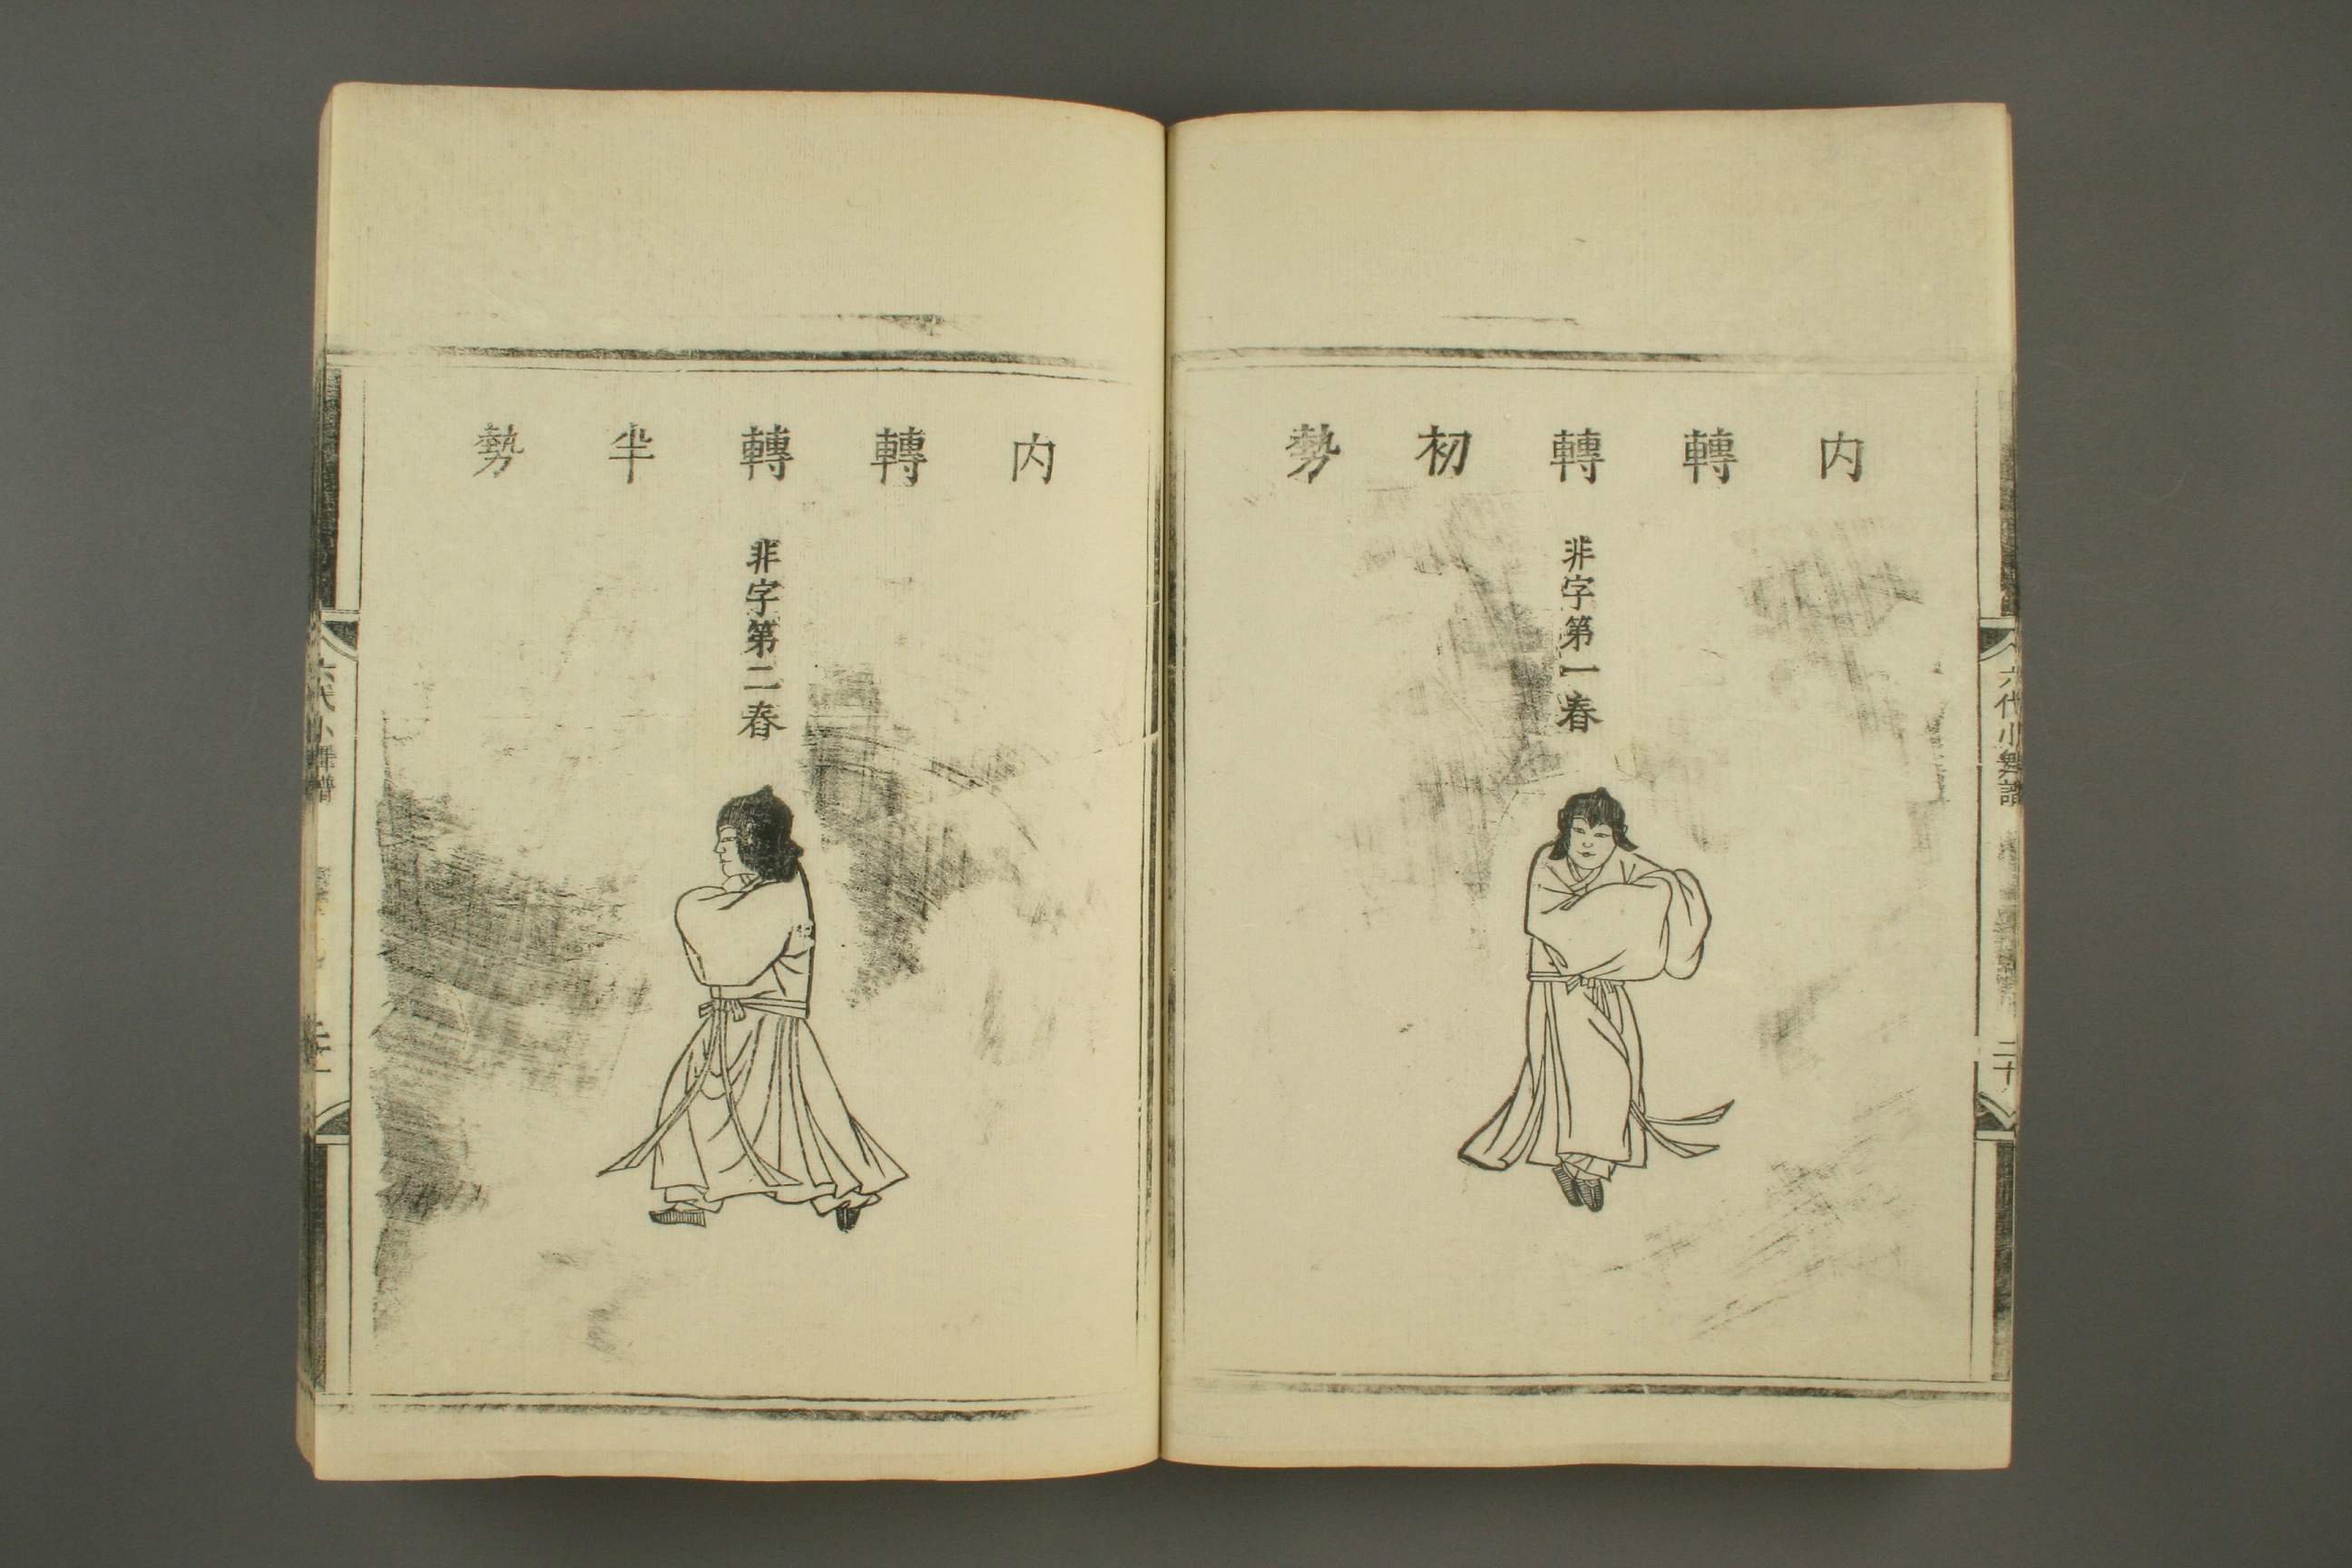 内轉轉初勢
非字第一舂
六代小舞譜
二十
内轉轉半勢
非字第二舂
六代小舞譜